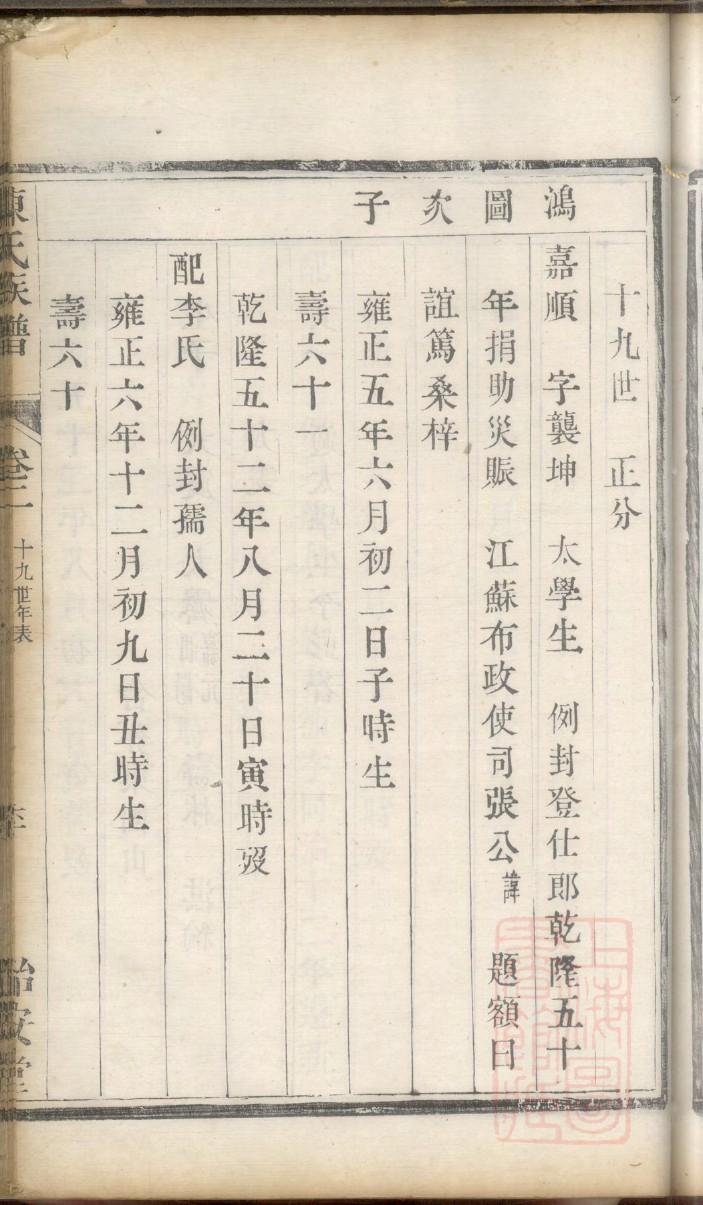 十九世 正分
鴻圖次子
嘉順 字襲坤 太學生 例封登仕郎乾隆五十
年捐助災賑 江蘇布政使司張公諱 題額曰
誼篤桑梓
雍正五年六月初二日子時生
壽六十一
乾隆五十二年八月二十日寅時歿
配李氏 例封孺人
雍正六年十二月初九日丑時生
壽六十
陳氏族譜 卷二 十九世年表